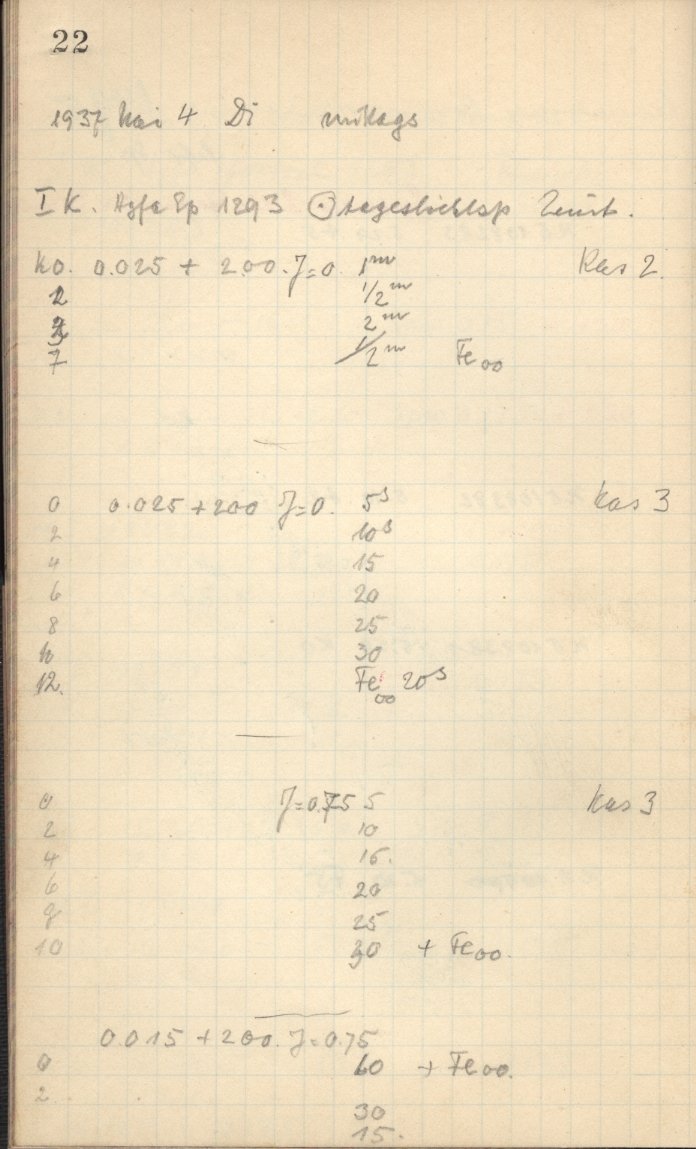 22
1937 Mai 4 Di mittags
I K. Agfa Sp 1293 ⊙ tageslichtsp Zenit.
K0. 0.025 + 200. J=0. 1ᵐ Kas 2.
½ᵐ
2ᵐ
7 ½ᵐ Fe₀₀
0 0.025 + 200 J=0. 5ˢ Kas 3
2 10ˢ
4 15
6 20
8 25
10 30
12. Fe₀₀ 20ˢ
0 J=0.75 5 Kas 3
2 10
4 15.
6 20
8 25
10 30 + Fe₀₀.
0.015 + 200. J=0.75
0 60 + Fe₀₀.
2. 30
15.